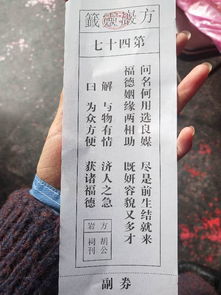 券
方巖靈籤
第四十七
问名何用选良媒 尽是前生结就来
福德姻缘两相助 既妍容貌又多才
解 与物有情 济人之急
曰 为众方便 获诸福德
方 胡公
岩 祠刊
副券